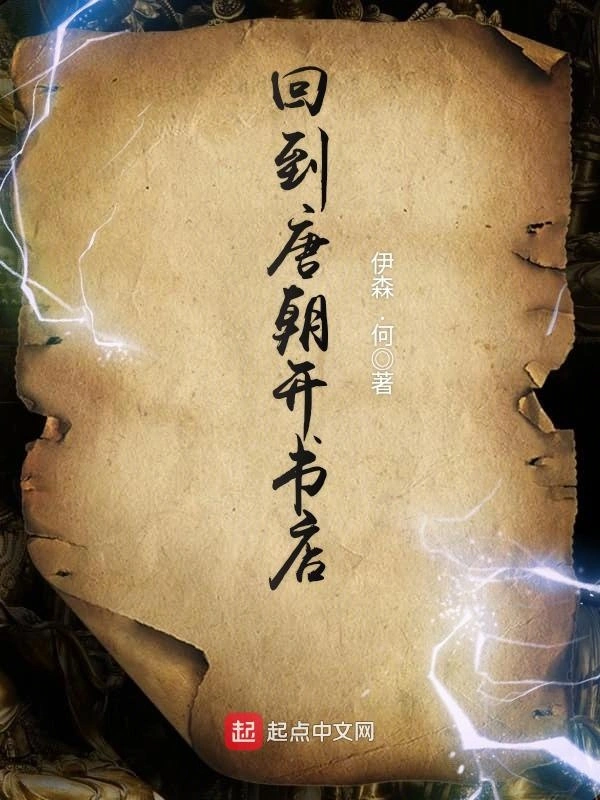 回到唐朝开书店
伊森.何◎著
起 起点中文网